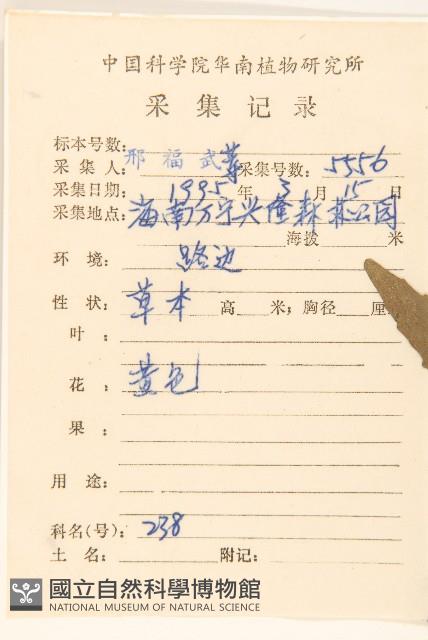 中国科学院华南植物研究所
采集记录
标本号数:
采集人: 邢福武等 采集号数: 5556
采集日期: 1995年3月15日
采集地点: 海南万宁兴隆森林公园
海拔 米
环境: 路边
性状: 草本 高 米; 胸径 厘
叶:
花: 黄色
果:
用途:
科名(号): 238
土名: 附记:
國立自然科學博物館
NATIONAL MUSEUM OF NATURAL SCIENCE